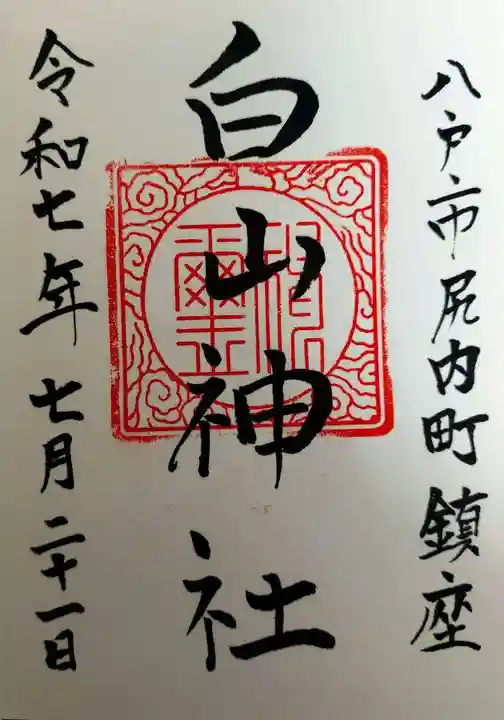 八戸市尻内町鎮座
白山神社
令和七年七月二十一日